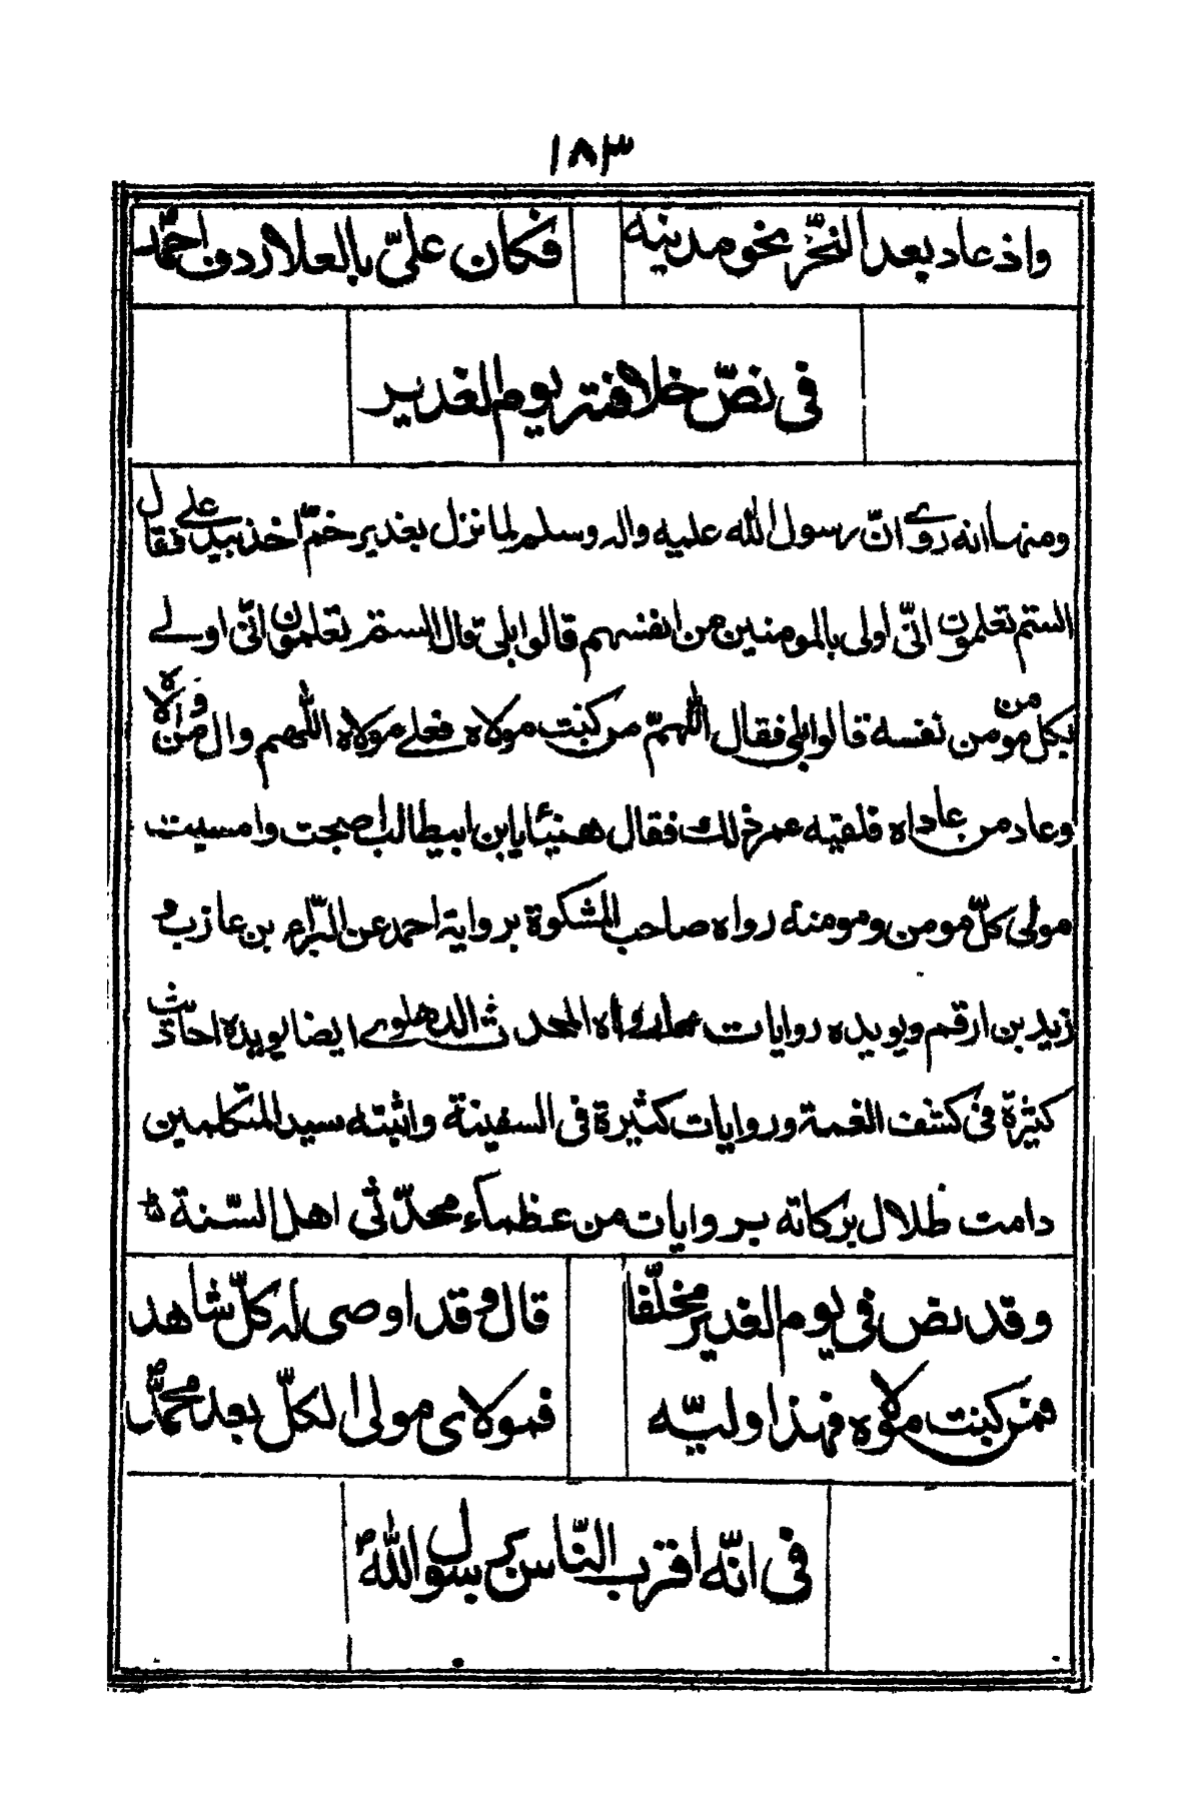 ١٨٣
واذ عاد بعد النحّر نحو مدينيه فكان علىّ بالعلا ردف احمّد
فى نصّ خلافته يوم الغدير
ومنها انه روى انّ رسول الله عليه واله وسلم لما نزل بغدير خمّ اخذ بيد على فقال
الستم تعلمون انّى اولى بالمومنين من انفسهم قالوا بلى قال الستم تعلمون انّى اولى
بكل مومن من نفسه قالوا بلى فقال اللهمّ من كنت مولاه فعلى مولاه اللهم وال من والاه
وعاد من عاداه فلقيه عمر ذلك فقال هنيئا يا ابن ابيطالب اصبحت وامسيت
مولى كلّ مومن ومومنه رواه صاحب المشكوة بروايه احمد عن البراء بن عازب و
زيد بن ارقم ويويده روايات رواه المحدث الدهلوى ايضا يويده احاديث
كثيرة فى كشف الغمة وروايات كثيرة فى السفينة واثبته سيد المتكلمين
دامت ظلال بركاته بروايات من عظماء محدّثى اهل السّنة
وقد نص فى يوم الغدير مخلّفا قال وقد اوصى له كلّ شاهد
فمن كنت مولاه فهذا وليّه فمولاى مولى الكلّ بعد محمّد
فى انّه اقرب النّاس برسول الله ص